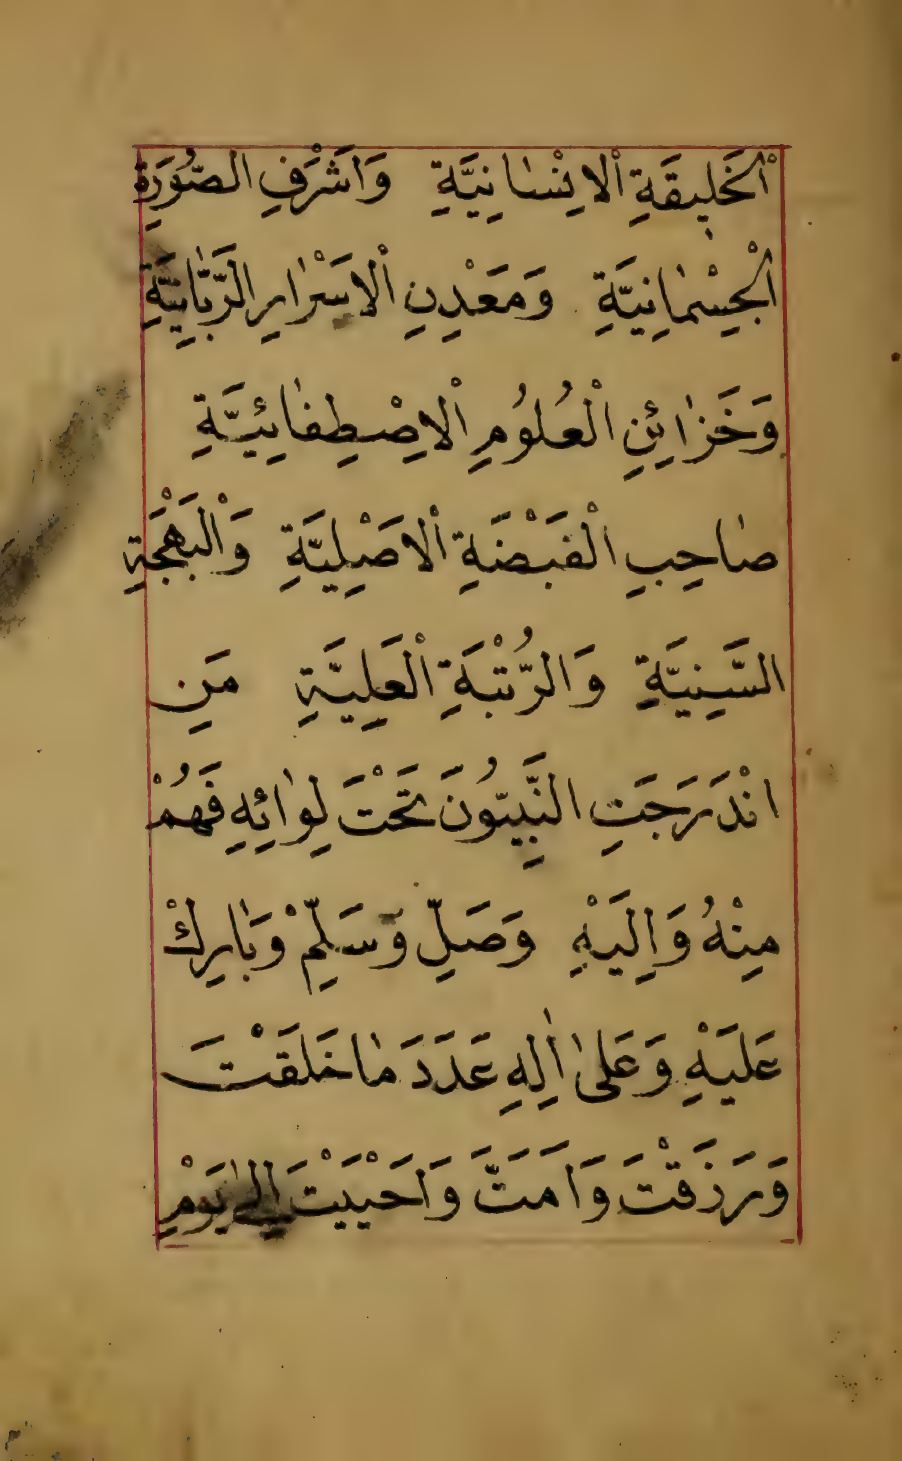 اْلخَلِيقَةِ اْلاِنْسٰانِيَّةِ وَاَشْرَفِ الصُّورَةِ
اْلجِسْمٰانِيَّةِ وَمَعْدِنِ اْلاَسْرٰارِ الرَّبّٰانِيَّةِ
وَخَزٰائِنِ اْلعُلُومِ اْلاِصْطِفٰائِيَّةِ
صٰاحِبِ اْلقَبْضَةِ اْلاَصْلِيَّةِ وَاْلبَهْجَةِ
السَّنِيَّةِ وَالرُّتْبَةِ اْلعَلِيَّةِ مَنِ
انْدَرَجَتِ النَّبِيُّونَ تَحْتَ لِوٰائِهِ فَهُمْ
مِنْهُ وَاِلَيْهِ وَصَلِّ وَسَلِّمْ وَبٰارِكْ
عَلَيْهِ وَعَلىٰ اٰلِهِ عَدَدَ مٰا خَلَقْتَ
وَرَزَقْتَ وَاَمَتَّ وَاَحْيَيْتَ اِلىٰ يَوْمِ